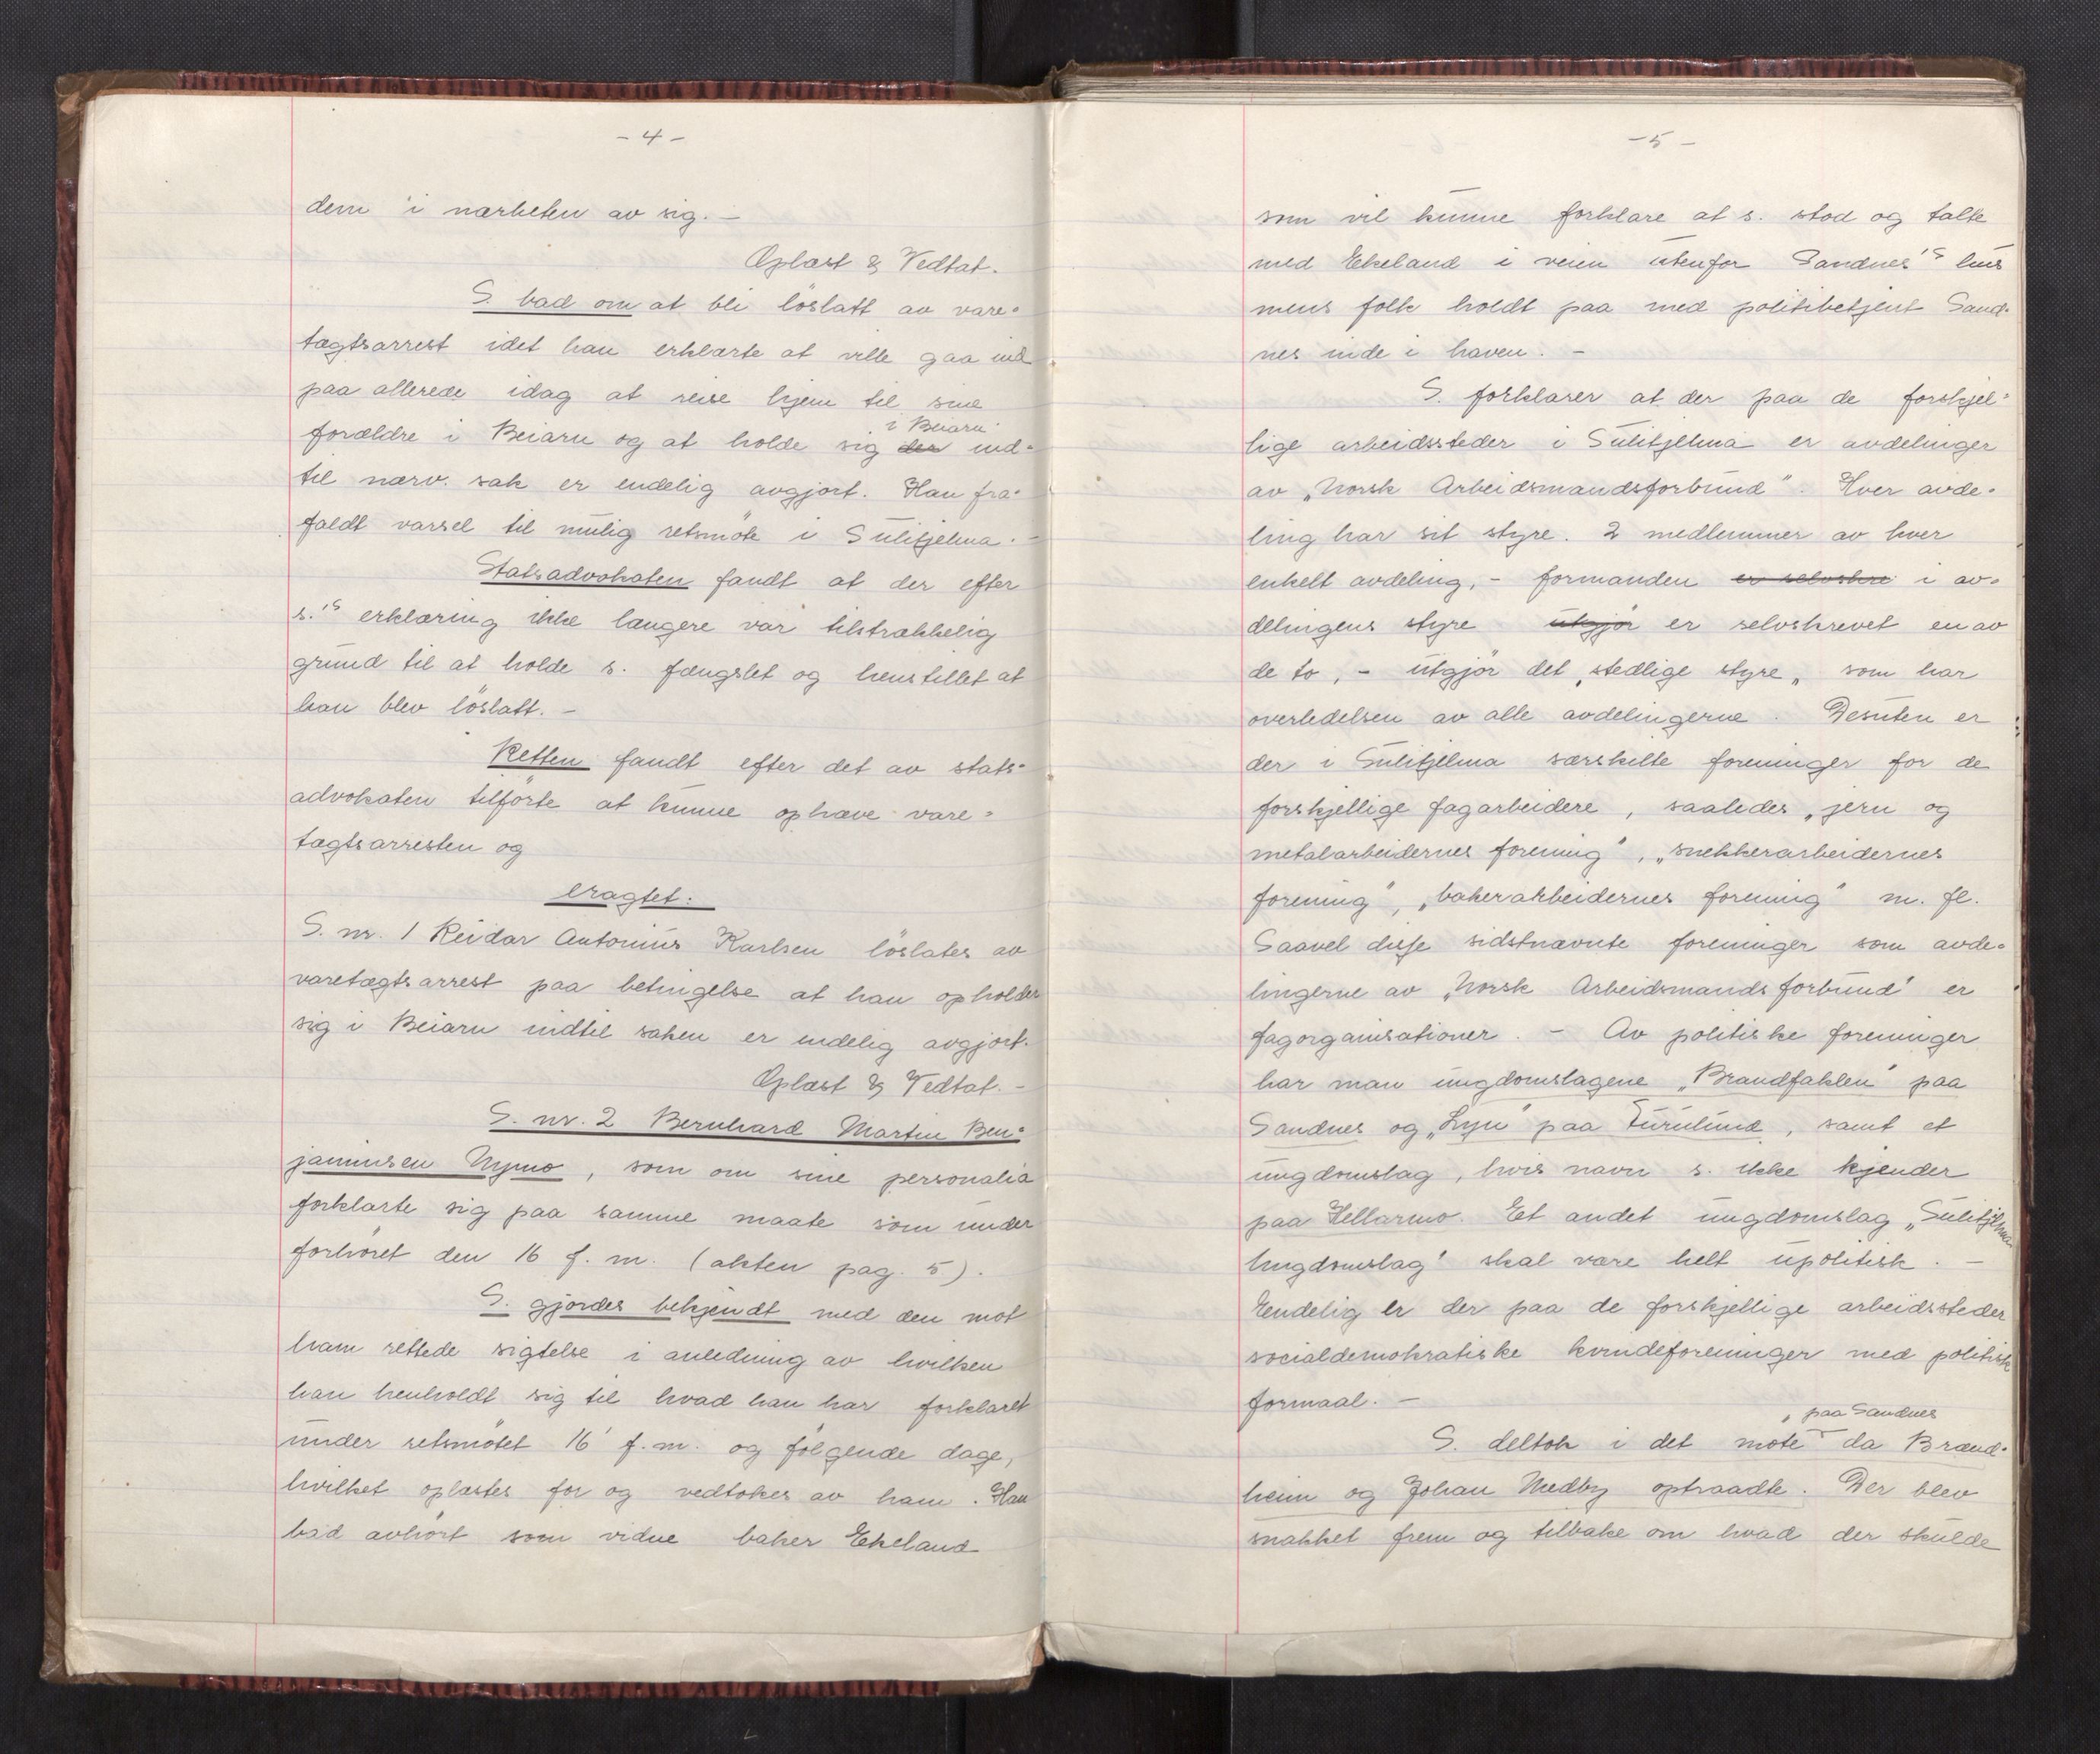 - 4 -
dem i nærheten av sig. -
Oplæst & Vedtat.
S. bad om at bli löslatt av vare-
tægtsarrest idet han erklærte at ville gaa ind
paa allerede idag at reise hjem til sine
i Beiarn
forældre i Beiarn og at holde sig der ind-
til nærv. sak er endelig avgjort. Han fra-
faldt varsel til mulig retsmöte i Sulitjelma. -
Statsadvokaten fandt at der efter
s.'s erklæring ikke længere var tilstrækkelig
grund til at holde s. fængslet og henstillet at
han blev löslatt. -
Retten fandt efter det av stats-
advokaten tilförte at kunne ophæve vare-
tægtsarresten og
eragtet:
S. nr. 1 Reidar Antonius Karlsen löslates av
varetægtsarrest paa betingelse at han opholder
sig i Beiarn indtil saken er endelig avgjort.
Oplæst & Vedtat. -
S. nr. 2 Bernhard Martin Ben-
jaminsen Nymo, som om sine personalia
forklarte sig paa samme maate som under
forhöret den 16 f. m. (akten pag. 5).
S. gjordes bekjendt med den mot
ham rettede sigtelse i anledning av hvilken
han henholdt sig til hvad han har forklaret
under retsmötet 16 f.m. og fölgende dage,
hvilket oplæstes for og vedtokes av ham. Han
bad avhört som vidne baker Ekeland
- 5 -
som vil kunne forklare at s. stod og talte
med Ekeland i veien utenfor Sandnes's hus
mens folk holdt paa med politibetjent Sand-
nes inde i haven. -
S. forklarer at der paa de forskjel-
lige arbeidssteder i Sulitjelma er avdelinger
av „Norsk Arbeidsmandsforbund". Hver avde-
ling har sit styre. 2 medlemmer av hver
enkelt avdeling, - formanden er selvskre i av-
delingens styre utgjör er selvskrevet en av
de to, - utgjör det „stedlige styre„ som har
overledelsen av alle avdelingerne. Desuten er
der i Sulitjelma særskilte foreninger for de
forskjellige fagarbeidere, saaledes „jern og
metalarbeidernes forening", „snekkerarbeidernes
forening", „bakerarbeidernes forening" m. fl.
Saavel disse sidstnævnte foreninger som avde-
lingerne av „Norsk Arbeidsmandsforbund" er
fagorganisationer. - Av politiske foreninger
har man ungdomslagene „Brandfaklen" paa
Sandnes og „Lyn" paa Furulund, samt et
ungdomslag, hvis navn s. ikke kjender
paa Hellarmo. Et andet ungdomslag „Sulitjelma
Ungdomslag" skal være helt upolitisk. -
Endelig er der paa de forskjellige arbeidssteder
socialdemokratiske kvindeforeninger med politisk
formaal. -
paa Sandnes
S. deltok i det möte da Brænd-
heim og Johan Medby optraadte. Der blev
snakket frem og tilbake om hvad der skulde